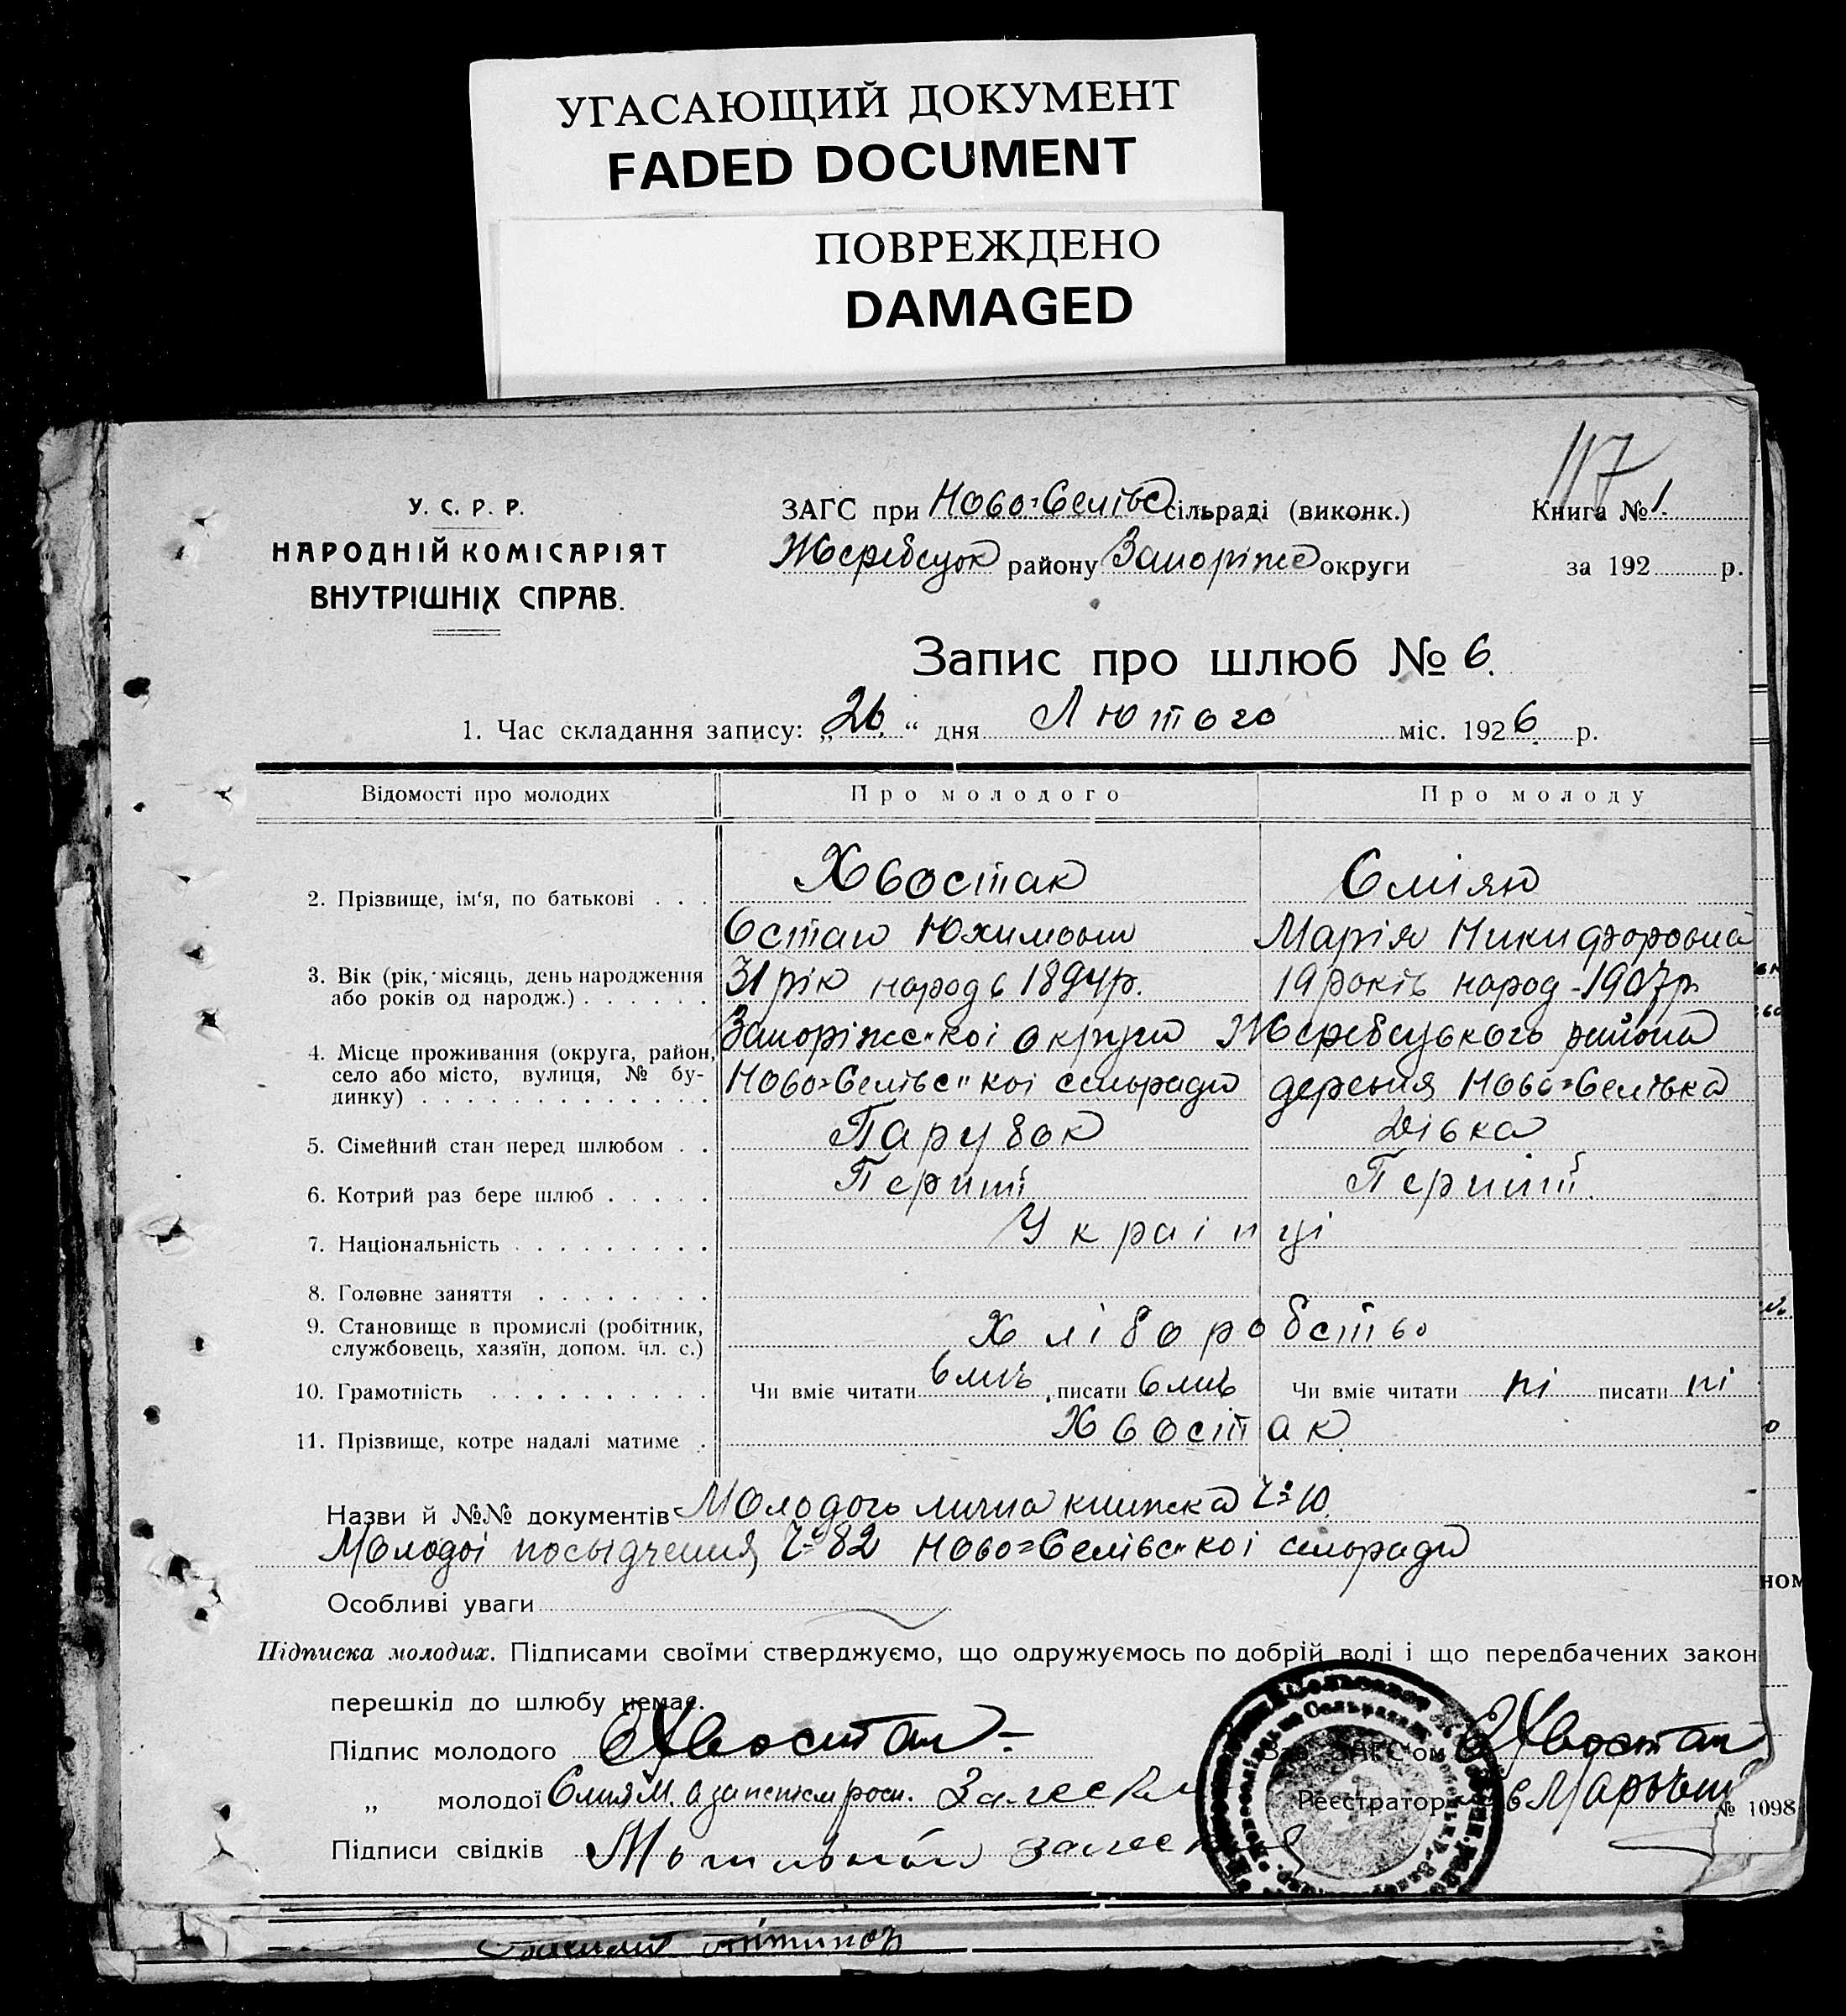 УГАСАЮЩИЙ ДОКУМЕНТ
FADED DOCUMENT
ПОВРЕЖДЕНО
DAMAGED
117
У. С. Р. Р.
НАРОДНІЙ КОМІСАРІЯТ
ВНУТРІШНІХ СПРАВ.
ЗАГС при Ново=Селівс сільраді (виконк.)
Жеребецьк району Запоріж округи
Книга № 1.
за 192 р.
Запис про шлюб № 6.
1. Час складання запису: „26“ дня Лютого міс. 1926 р.
Відомості про молодих Про молодого Про молоду
2. Прізвище, ім'я, по батькові . . . Хвостак Сміян
Остап Юхимович Марія Никифоровна
3. Вік (рік, місяць, день народження або років од народж.) . . . . . . 31 рік народ в 1894 р. 19 років народ-1907 р
4. Місце проживання (округа, район, село або місто, вулиця, № будинку) . . . . . . . . . . . . . Запоріжс"кої округи Жеребецького района
Ново=Селівс"кої сельради деревня Ново=Селівка
5. Сімейний стан перед шлюбом . . Парубок Дівка
6. Котрий раз бере шлюб . . . . . Перший Перший.
7. Національність . . . . . . . . . Українці
8. Головне заняття . . . . . . . .
9. Становище в промислі (робітник, службовець, хазяїн, допом. чл. с.) Хліборобство
10. Грамотність . . . . . . . . . . Чи вміє читати вмиь писати вмиь Чи вміє читати ні писати ні
11. Прізвище, котре надалі матиме . Хвостак
Назви й №№ документів Молодого лична книжка Ч= 10.
Молодої посыдчення Ч= 82 Ново=Селівс"кої сельради
Особливі уваги
Підписка молодих. Підписами своїми стверджуємо, що одружуємось по добрій волі і що передбачених закон
перешкід до шлюбу немає.
Підпис молодого Хвостак
Зав. ЗАГС'ом Хвостак
„ молодої Сміян М.
Реєстратор
№ 1098
Підписи свідків